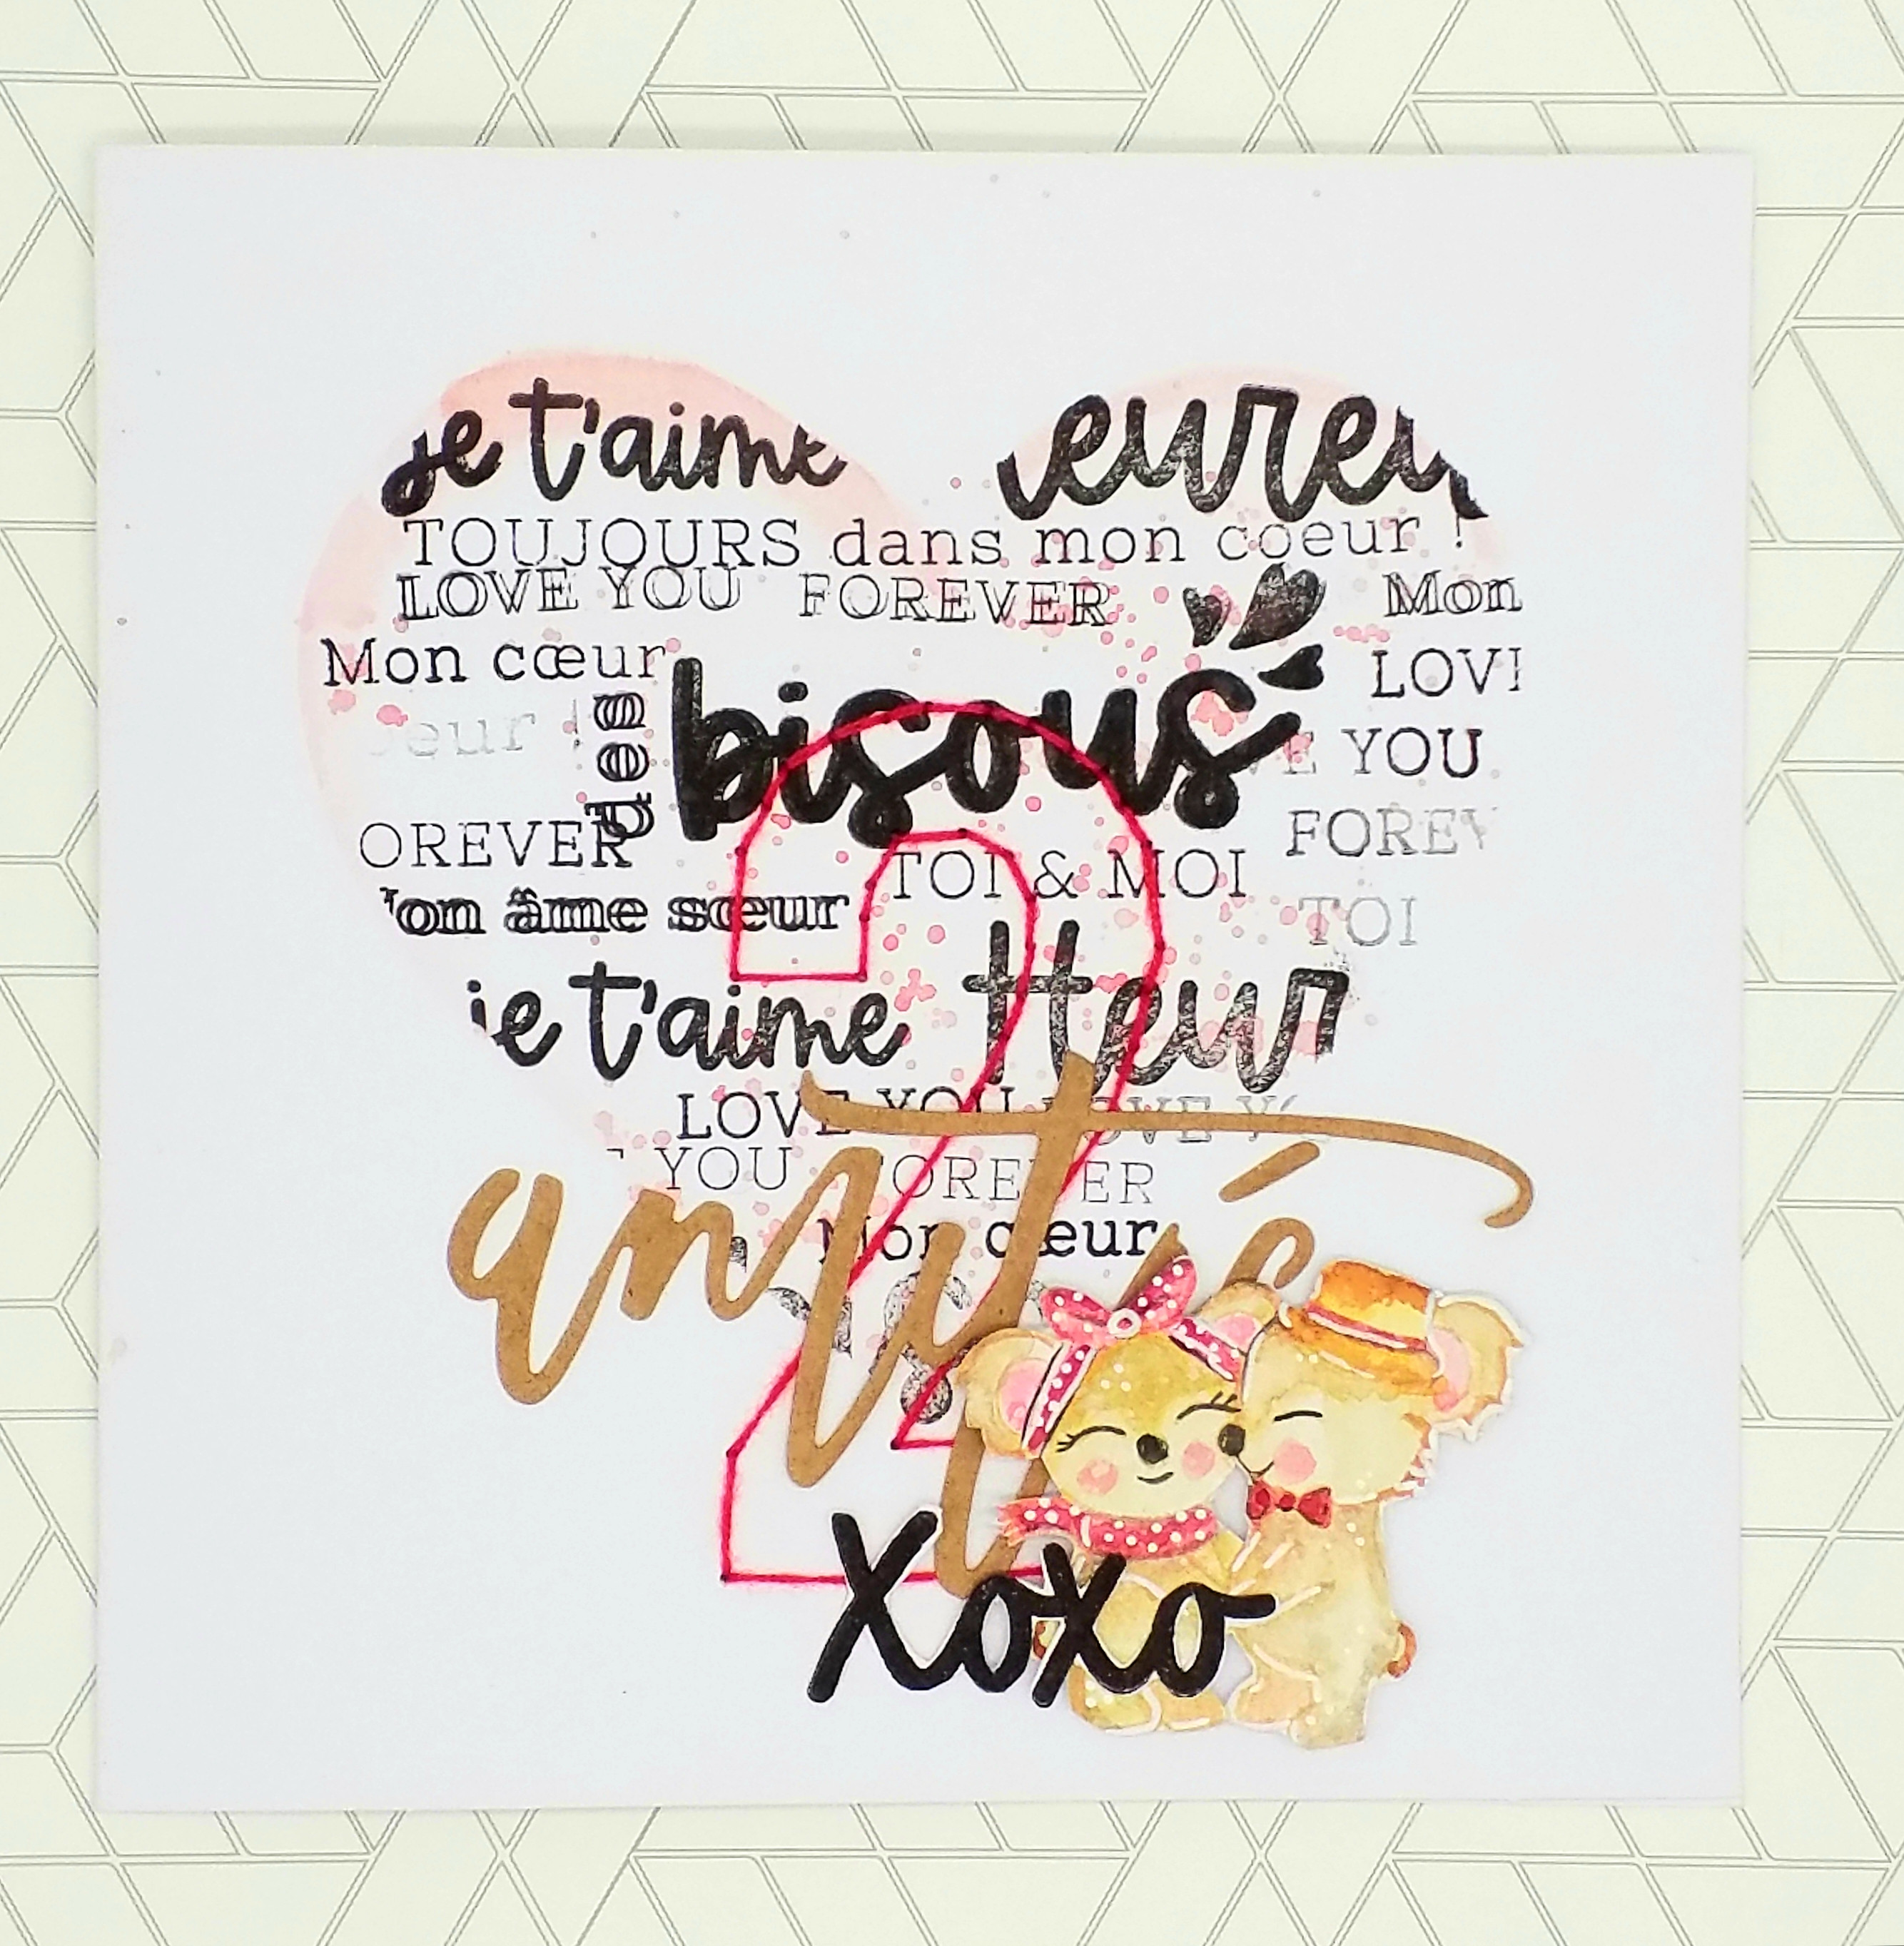 je t'aime eureu
TOUJOURS dans mon coeur !
LOVE YOU FOREVER Mon
Mon cœur LOV
eur ! bisous E YOU
OREVER TOI & MOI FOREV
on âme sœur TOI
je t'aime Heur
LOVE YOU LOVE Y
YOU FOREVER
Mon cœur
amitié
2
xoxo